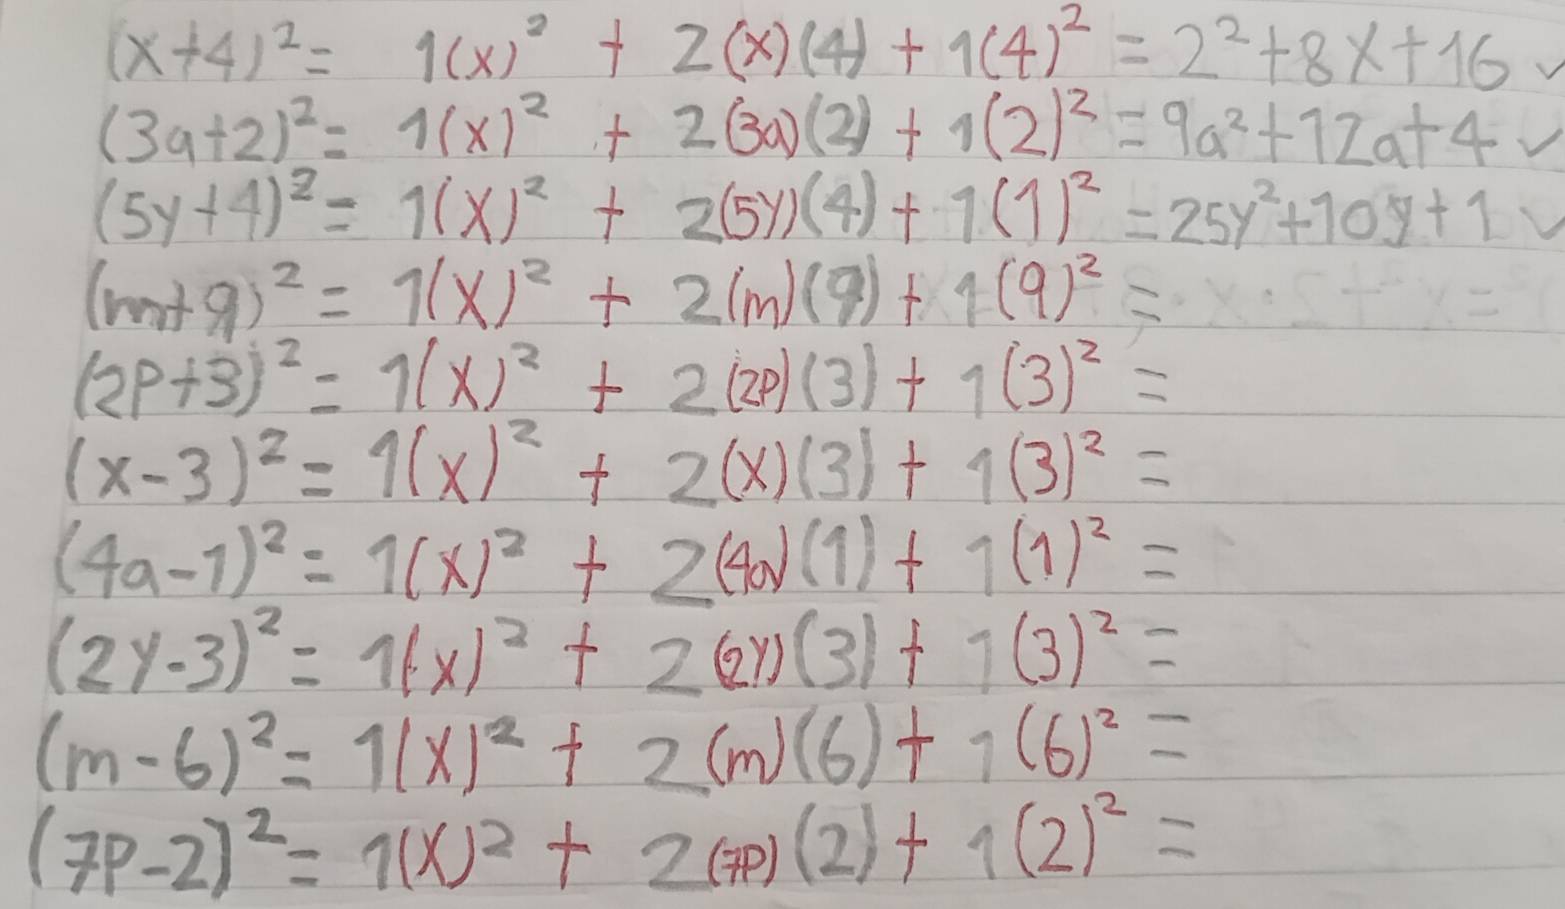 (x+4)² = 1(x)² + 2(x)(4) + 1(4)² = 2²+8x+16 ✓
(3a+2)² = 1(x)² + 2(3a)(2) + 1(2)² = 9a²+12a+4 ✓
(5y+1)² = 1(x)² + 2(5y)(1) + 1(1)² = 25y²+10y+1 ✓
(m+9)² = 1(x)² + 2(m)(9) + 1(9)² =
(2p+3)² = 1(x)² + 2(2p)(3) + 1(3)² =
(x-3)² = 1(x)² + 2(x)(3) + 1(3)² =
(4a-1)² = 1(x)² + 2(4a)(1) + 1(1)² =
(2y-3)² = 1(x)² + 2(2y)(3) + 1(3)² =
(m-6)² = 1(x)² + 2(m)(6) + 1(6)² =
(7p-2)² = 1(x)² + 2(7p)(2) + 1(2)² =